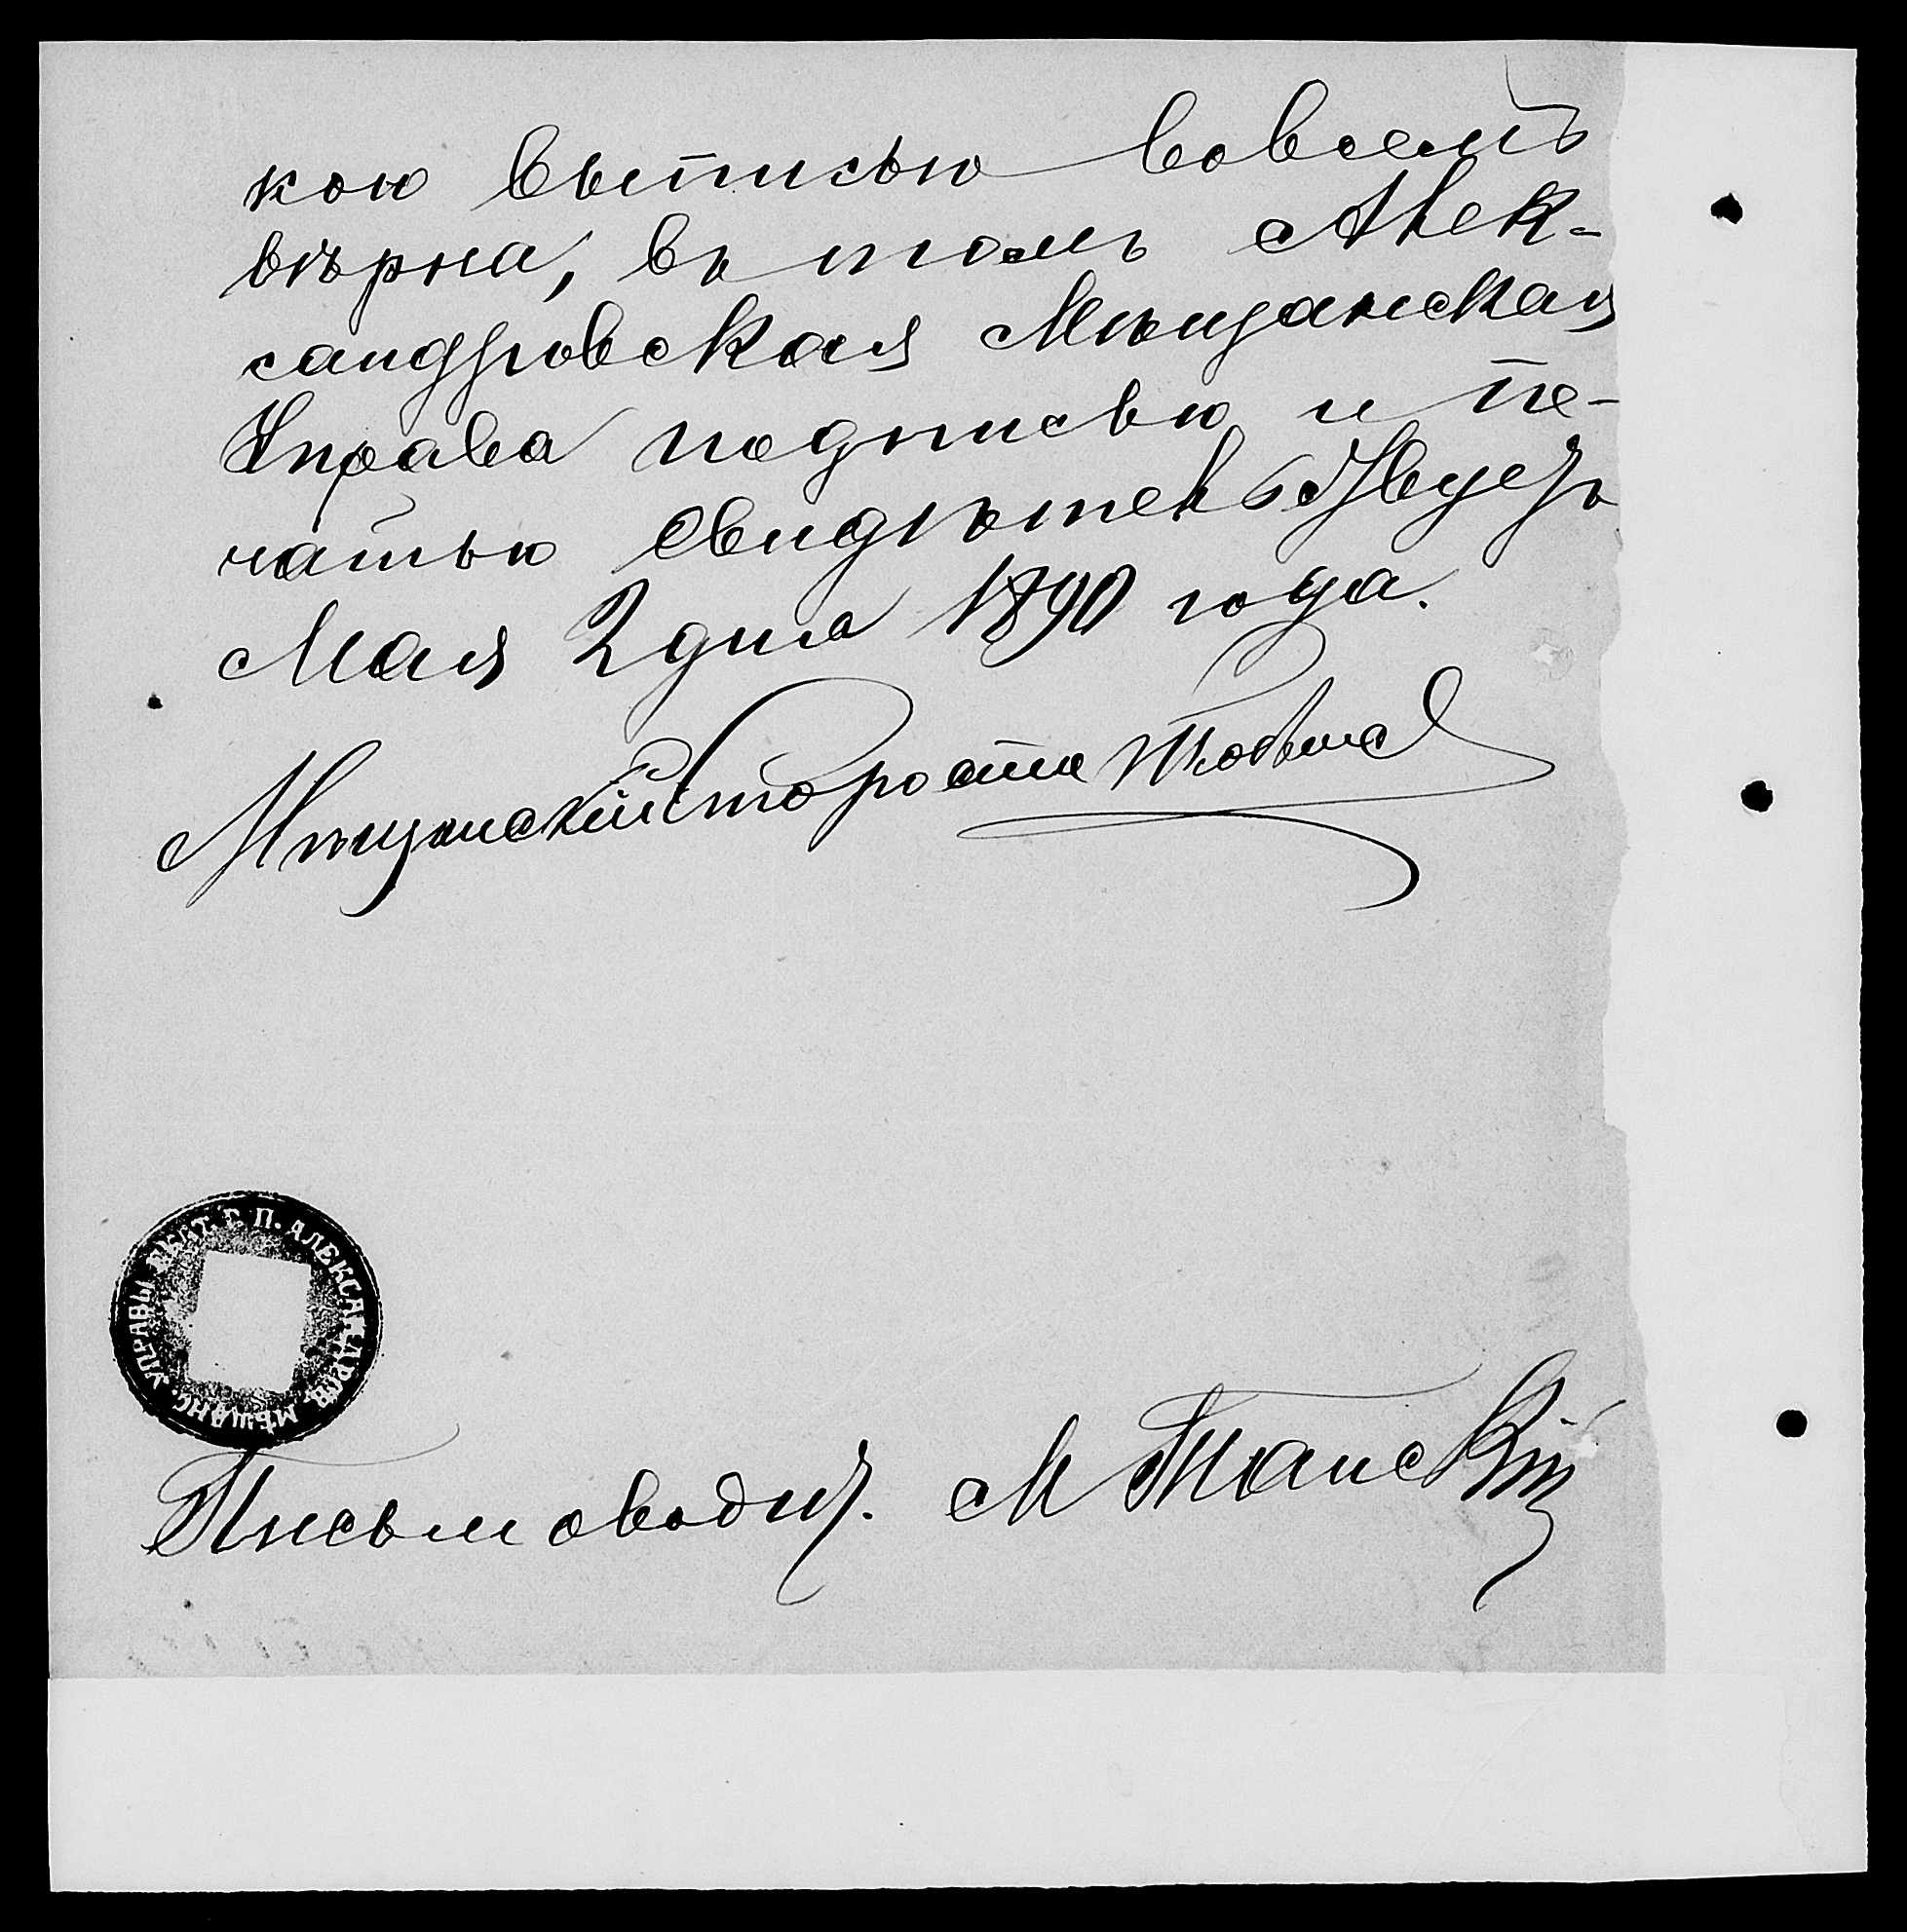 кою выписью вовсемъ
вѣрна, въ томъ Алек-
сандровская Мѣщанская
Управа подписью и пе-
чатью свидѣтельствуетъ
Мая 2 дня 1890 года.
Мѣщанскій Староста
УПРАВЫ ЕКАТ. Г. П. АЛЕКСАНДРОВ. МѢЩАНС.
Письмоводит. М Танскій